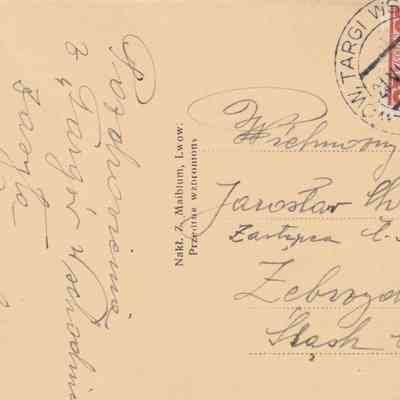 Pozdrowienia
z
Targów Wschodnich
Nakł. Z. Maiblum, Lwow.
Przedruk wzbroniony
OWI. TARGI WS
Wielmożny
Jarosław
Zastępca
Zebrzyd
Śląsk